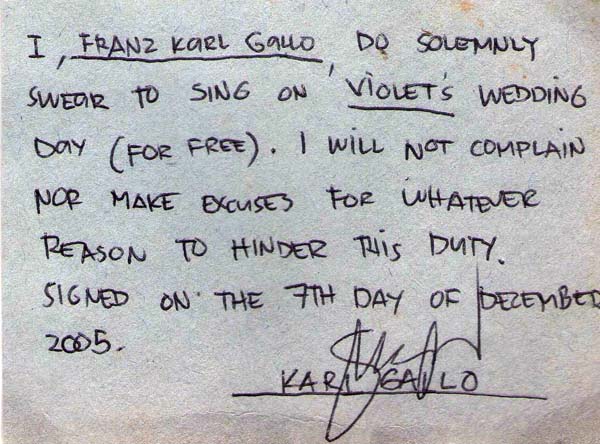 I, FRANZ KARL GALLO, DO SOLEMNLY
SWEAR TO SING ON VIOLET'S WEDDING
DAY (FOR FREE). I WILL NOT COMPLAIN
NOR MAKE EXCUSES FOR WHATEVER
REASON TO HINDER THIS DUTY.
SIGNED ON THE 7TH DAY OF DECEMBER
2005.
KARL GALLO